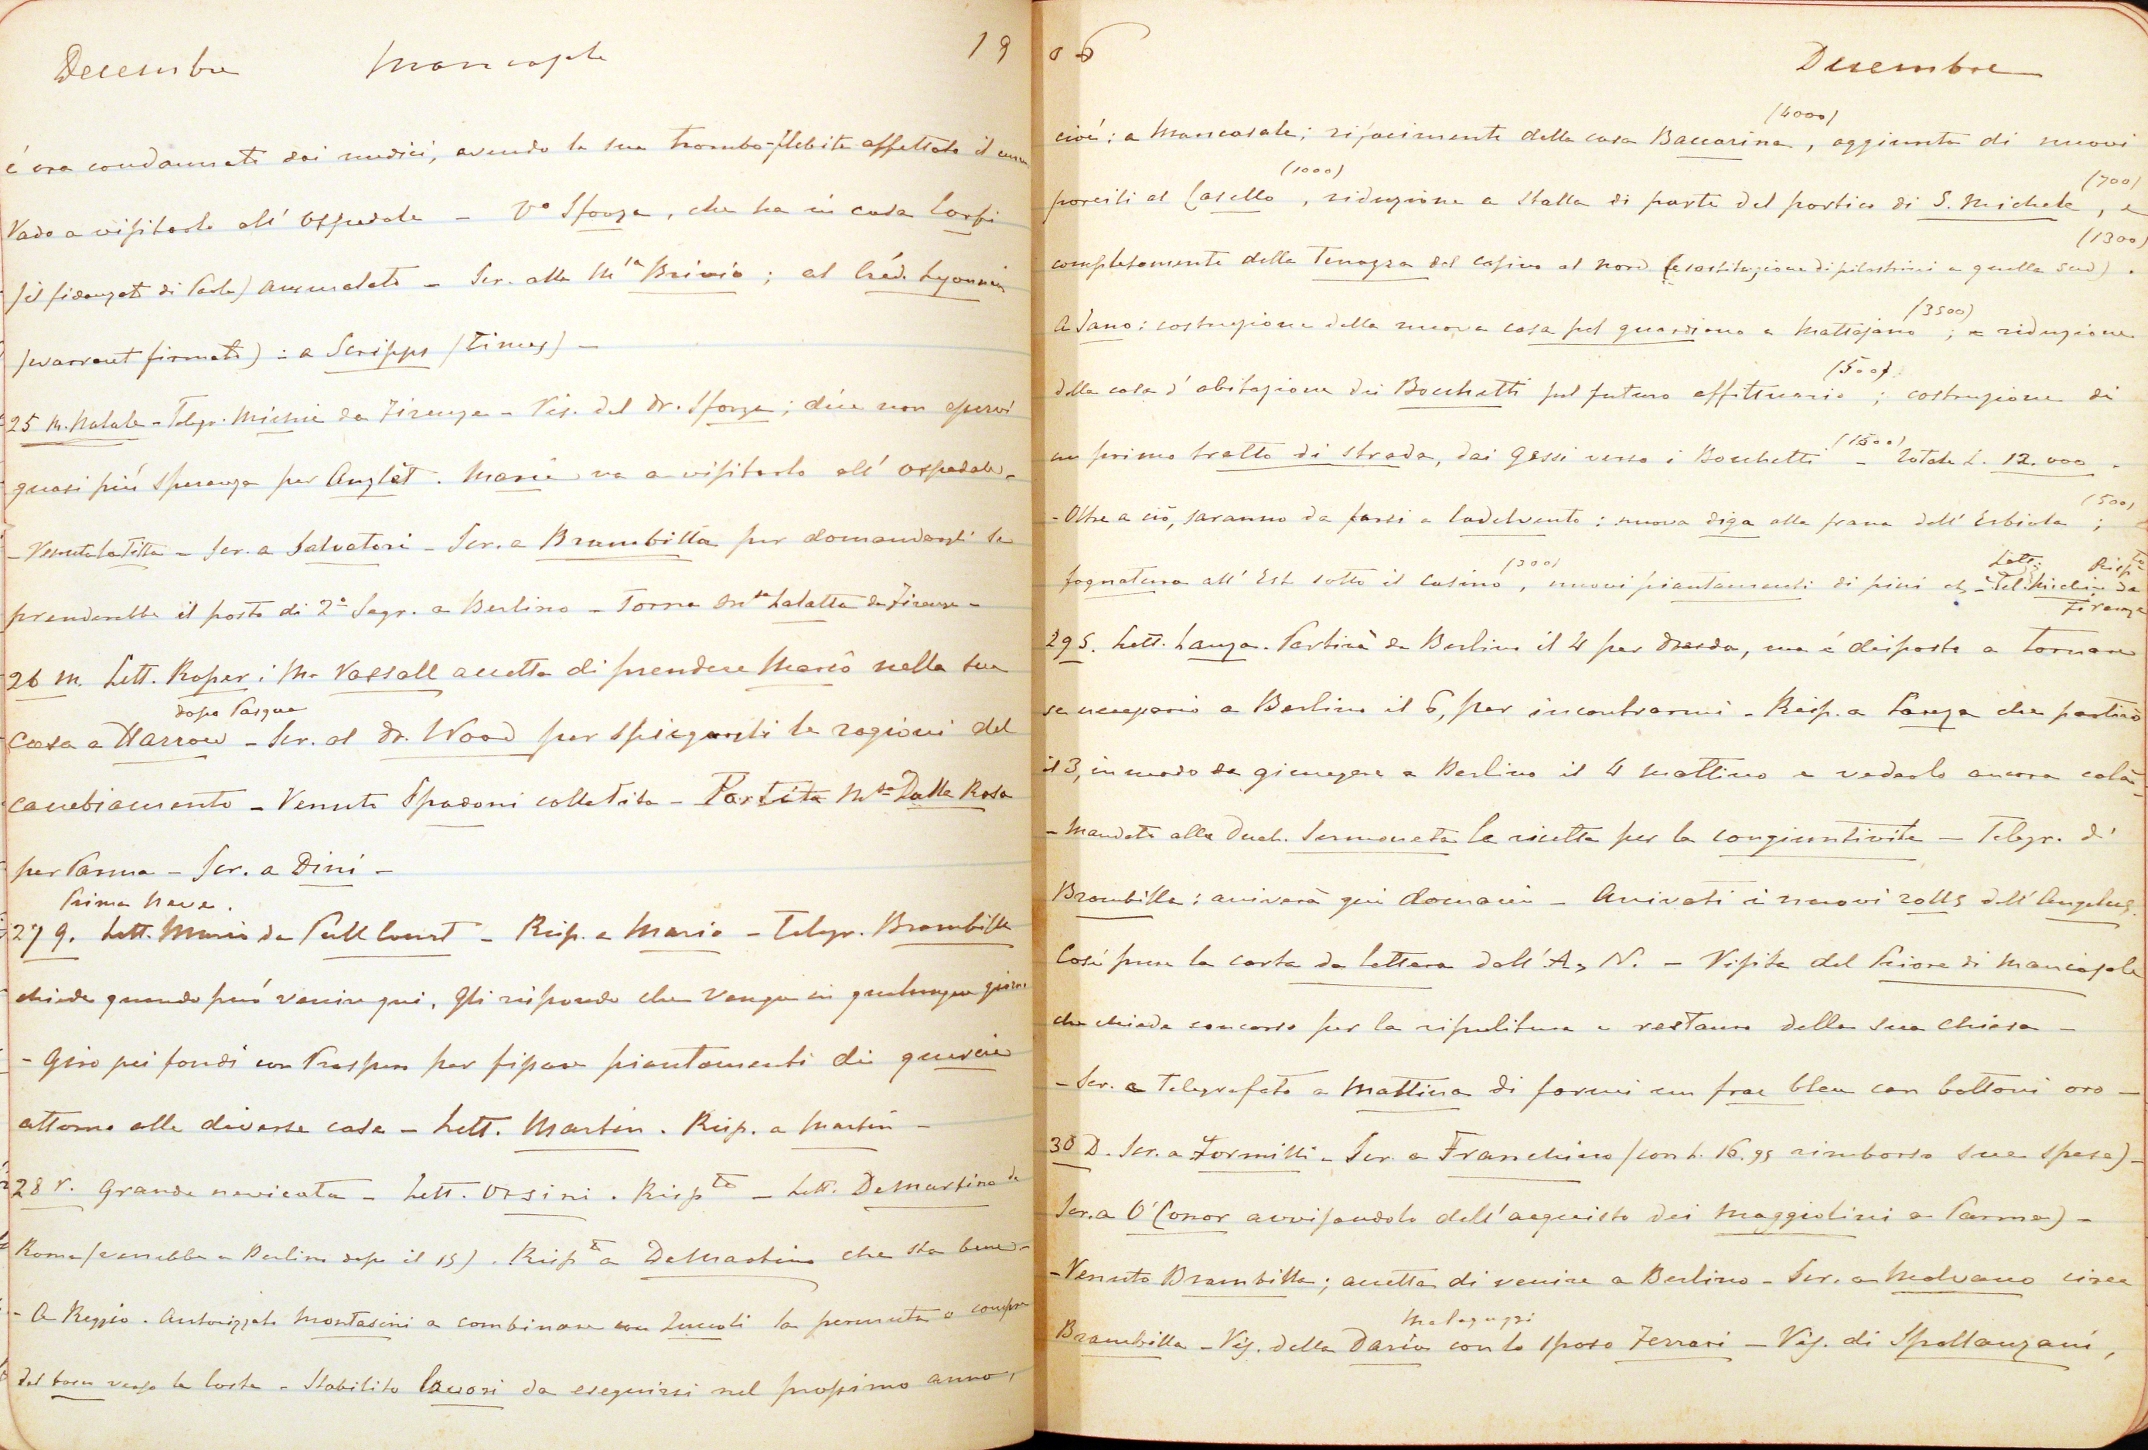 Decembre Mancasale 19
è ora condannato dai medici, avendo la sua trombo-flebite affettato il cuore
Vado a visitarlo all' Ospedale — V° Sforza, che ha in casa Corfi
(il fidanzato di Paola) ammalato — Scr. alla M.sa Brivio ; al Créd. Lyonnais
(warrant firmato) : a Scripps (Times) —
25 M. Natale — Telegr. Michie da Firenze — Vis. del Dr. Sforza ; dice non esservi
quasi più speranza per Anzlét. Marie va a visitarlo all' ospedale —
— Venuta la Titta — Scr. a Salvatori — Scr. a Brambilla per domandargli se
prenderebbe il posto di 2° Segr. a Berlino — Torna M.sa Lalatta da Firenze —
26 M. Lett. Roper : Mr. Vassall accetta di prendere Mario nella sua
dopo Pasqua
casa a Harrow — Scr. al Dr. Wood per spiegargli le ragioni del
cambiamento — Venuti Spadoni colla Tita — Partita M.sa Dalla Rosa
per Parma — Scr. a Dini —
Prima neve.
27 G. Lett. Mario da Pull Court — Risp. a Mario — Telegr. Brambilla
chiede quando può venire qui, gli rispondo che venga in qualunque giorno
— Giro pei fondi con Prosper per fissare piantamenti di quercie
attorno alle diverse case — Lett. Martin. Risp. a Martin —
28 V. Grande nevicata — Lett. Orsini. Rispto — Lett. De Martino da
Roma (verrebbe a Berlino dopo il 15). Rispto a De Martino che sta bene —
— A Reggio. Autorizzato Montasini a combinare con Zuccoli la permuta o compra
del verso la Costa — Stabilito lavori da eseguirsi nel prossimo anno,
06 Decembre
(4000)
cioè : a Mancasale ; rifacimento della casa Baccarina, aggiunta di nuovi
(1000) (700)
porcili al Casello, riduzione a stalla di parte del portico di S. Michele, e
(1300)
completamento della Terrazza del casino al nord (e sostituzione di pilastrini a quella sud).
(3500)
A Sano : costruzione della nuova casa pel guardiano a Mattajano ; e riduzione
(500)
della casa d' abitazione dei Bocchetti pel futuro affittuario ; costruzione di
(1500)
un primo tratto di strada, dai Gessi verso i Bocchetti — Totale L. 12.000 —
(500)
— Oltre a ciò, saranno da farsi a Cadelvento : nuova diga alla frana dell' Erbiola ;
(300) Lett. Rispto
fognatura all' Est sotto il casino, nuovi piantamenti di pini etc — Tel. Michie da
Firenze
29 S. Lett. Lanza. Partirà da Berlino il 4 per Dresda, ma è disposto a tornare
se necessario a Berlino il 6, per incontrarmi — Risp. a Lanza che partirò
il 3, in modo da giungere a Berlino il 4 mattino e vederlo ancora colà —
— Mandata alla Duch. Sermoneta la ricetta per la congiuntivite — Telegr. di
Brambilla : arriverà qui domani — Arrivati i nuovi rolls dell' Angelus.
Così pure la carta da lettera dall' A. N. — Visita del Priore di Mancasale
che chiede concorso per la ripulitura e restauro della sua chiesa —
— Scr. e telegrafato a Mattina di farmi un frac bleu con bottoni oro —
30 D. Scr. a Formilli — Scr. a Franchino (con L. 16.95 rimborso sue spese) —
Scr. a O'Conor avvisandolo dell' acquisto dei Maggiolini a Parma) —
— Venuto Brambilla ; accetta di venire a Berlino — Scr. a Malvano circa
Malaguzzi
Brambilla — Vis. della Daria con lo sposo Ferrari — Vis. di Spallanzani,